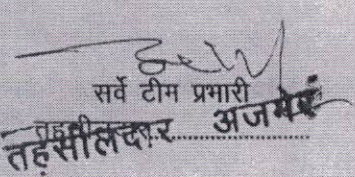 सर्वे टीम प्रभारी
तहसीलदार अजमेर